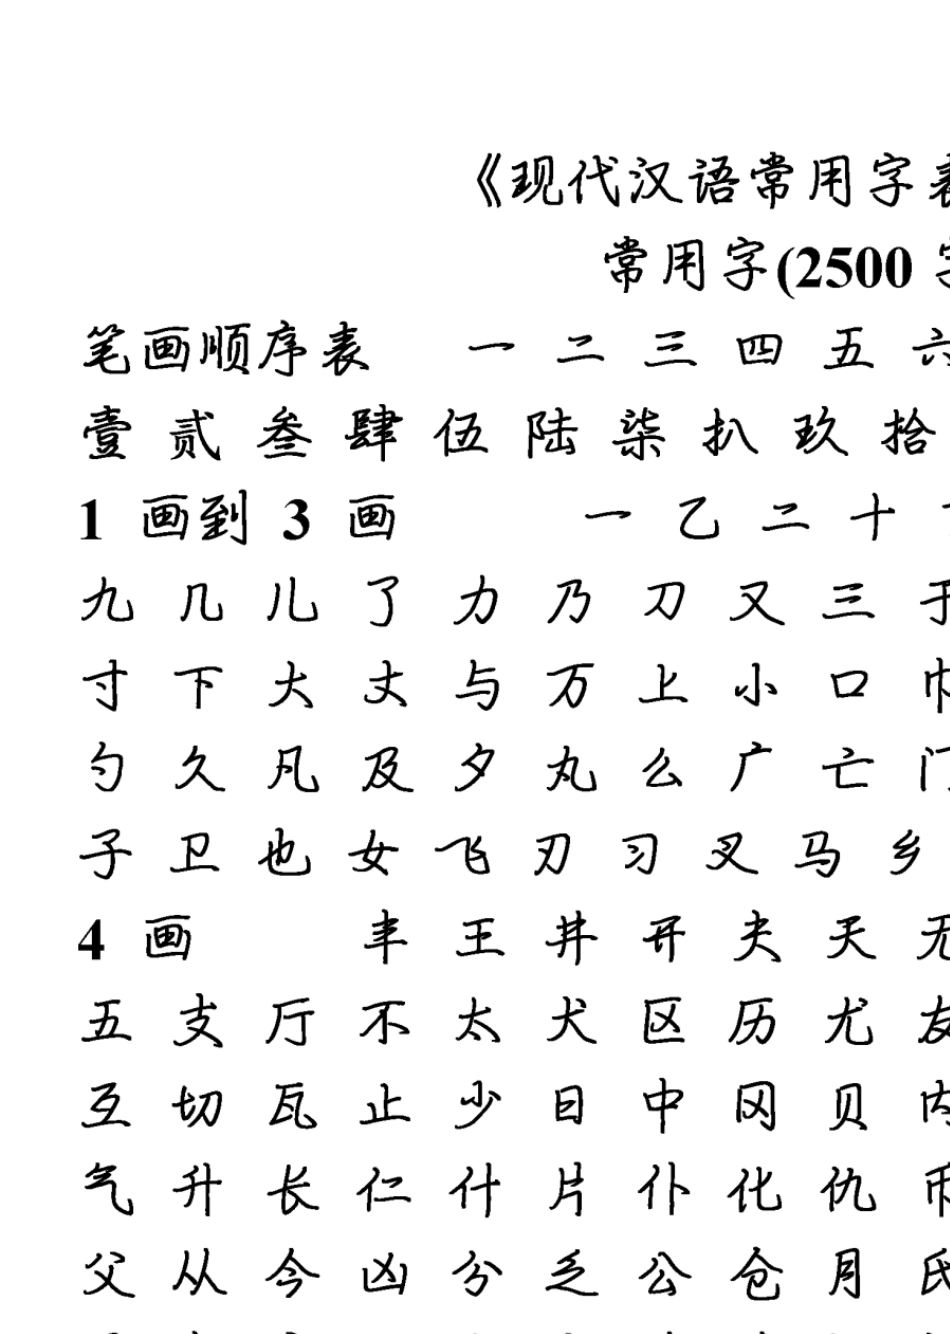 《现代汉语常用字表
常用字(2500 字
笔画顺序表 一 二 三 四 五 六
壹 贰 叁 肆 伍 陆 柒 扒 玖 拾
1 画到 3 画 一 乙 二 十
九 几 儿 了 力 乃 刀 又 三 于
寸 下 大 丈 与 万 上 小 口 巾
勺 久 凡 及 夕 丸 么 广 亡 门
子 卫 也 女 飞 刃 习 叉 马 乡
4 画 丰 王 井 开 夫 天 无
五 支 厅 不 太 犬 区 历 尤 友
互 切 瓦 止 少 日 中 冈 贝 内
气 升 长 仁 什 片 仆 化 仇 币
父 从 今 凶 分 乏 公 仓 月 氏